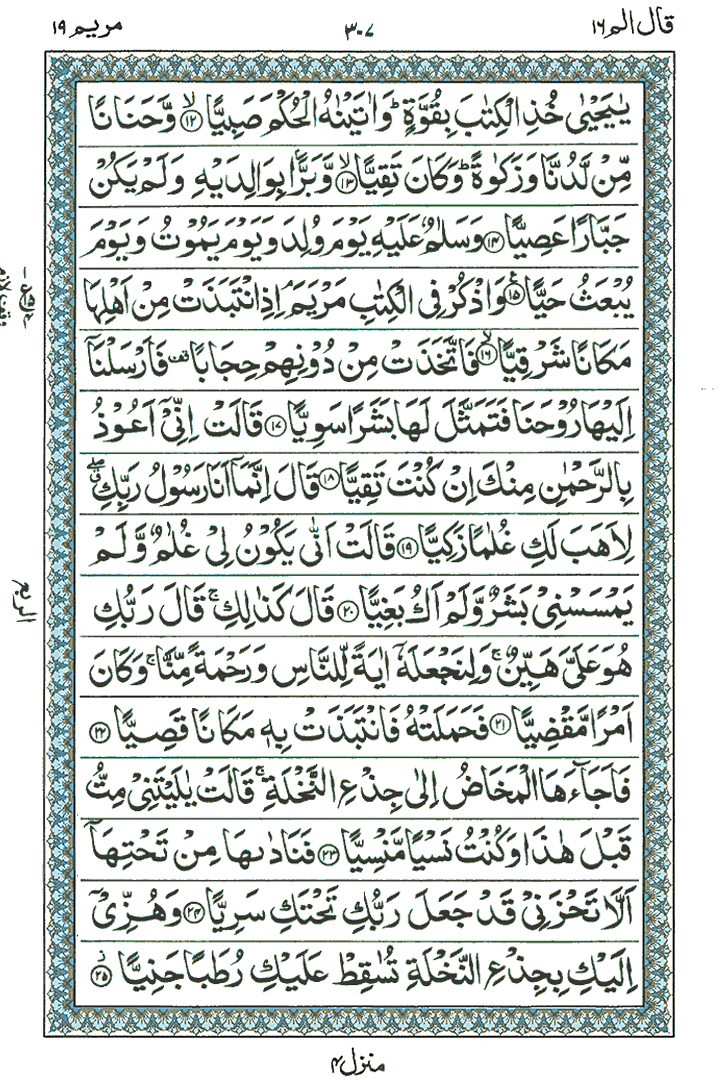 قال الم ١٦ ٣٠٧ مريم ١٩
يٰيَحْيٰى خُذِ الْكِتٰبَ بِقُوَّةٍ ؕ وَاٰتَيْنٰهُ الْحُكْمَ صَبِيًّا ۙ‏﴿۱۲﴾ وَّحَنَانًا
مِّنْ لَّدُنَّا وَزَكٰوةً ؕ وَكَانَ تَقِيًّا ۙ‏﴿۱۳﴾ وَّبَرًّۢا بِوَالِدَيْهِ وَلَمْ يَكُنْ
جَبَّارًا عَصِيًّا ﴿۱۴﴾ وَسَلٰمٌ عَلَيْهِ يَوْمَ وُلِدَ وَيَوْمَ يَمُوْتُ وَيَوْمَ
يُبْعَثُ حَيًّا ﴿۱۵﴾ وَاذْكُرْ فِى الْكِتٰبِ مَرْيَمَ ۘ اِذِ انْتَبَذَتْ مِنْ اَهْلِهَا
مَكَانًا شَرْقِيًّا ۙ‏﴿۱۶﴾ فَاتَّخَذَتْ مِنْ دُوْنِهِمْ حِجَابًا قف فَاَرْسَلْنَاۤ
اِلَيْهَا رُوْحَنَا فَتَمَثَّلَ لَهَا بَشَرًا سَوِيًّا ﴿۱۷﴾ قَالَتْ اِنِّىْۤ اَعُوْذُ
بِالرَّحْمٰنِ مِنْكَ اِنْ كُنْتَ تَقِيًّا ﴿۱۸﴾ قَالَ اِنَّمَاۤ اَنَا رَسُوْلُ رَبِّكِ ۖ
لِاَهَبَ لَكِ غُلٰمًا زَكِيًّا ﴿۱۹﴾ قَالَتْ اَنّٰى يَكُوْنُ لِىْ غُلٰمٌ وَّلَمْ
يَمْسَسْنِىْ بَشَرٌ وَّلَمْ اَكُ بَغِيًّا ﴿۲۰﴾ قَالَ كَذٰلِكِ ۚ قَالَ رَبُّكِ
هُوَ عَلَىَّ هَيِّنٌ ۚ وَلِنَجْعَلَهٗۤ اٰيَةً لِّلنَّاسِ وَرَحْمَةً مِّنَّا ۚ وَكَانَ
اَمْرًا مَّقْضِيًّا ﴿۲۱﴾ فَحَمَلَتْهُ فَانْتَبَذَتْ بِهٖ مَكَانًا قَصِيًّا ﴿۲۲﴾
فَاَجَآءَهَا الْمَخَاضُ اِلٰى جِذْعِ النَّخْلَةِ ۚ قَالَتْ يٰلَيْتَنِىْ مِتُّ
قَبْلَ هٰذَا وَكُنْتُ نَسْيًا مَّنْسِيًّا ﴿۲۳﴾ فَنَادٰٮهَا مِنْ تَحْتِهَاۤ
اَلَّا تَحْزَنِىْ قَدْ جَعَلَ رَبُّكِ تَحْتَكِ سَرِيًّا ﴿۲۴﴾ وَهُزِّىْۤ
اِلَيْكِ بِجِذْعِ النَّخْلَةِ تُسٰقِطْ عَلَيْكِ رُطَبًا جَنِيًّا ۙ‏﴿۲۵﴾
الربع
منزل ۴